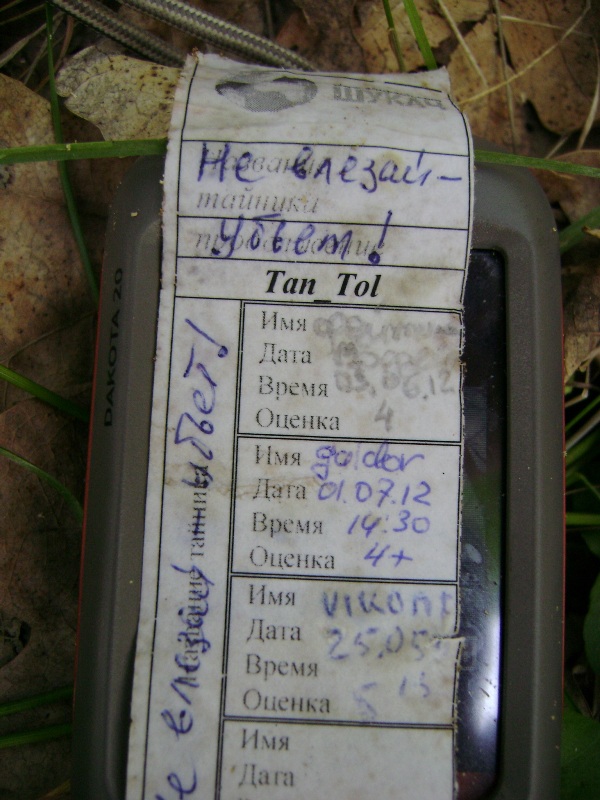 ШУКАЧ
Название
Не влезай-
тайника
убьет!
Tan_Tol
Имя
Дата
Время 03.06.12
Оценка 4
Имя goldor
Дата 01.07.12
Время 14:30
Оценка 4+
Имя vikont
Дата 25.05
Время
Оценка 5
Имя
Дата
Название тайника
Не влезай убьет!
DAKOTA 20